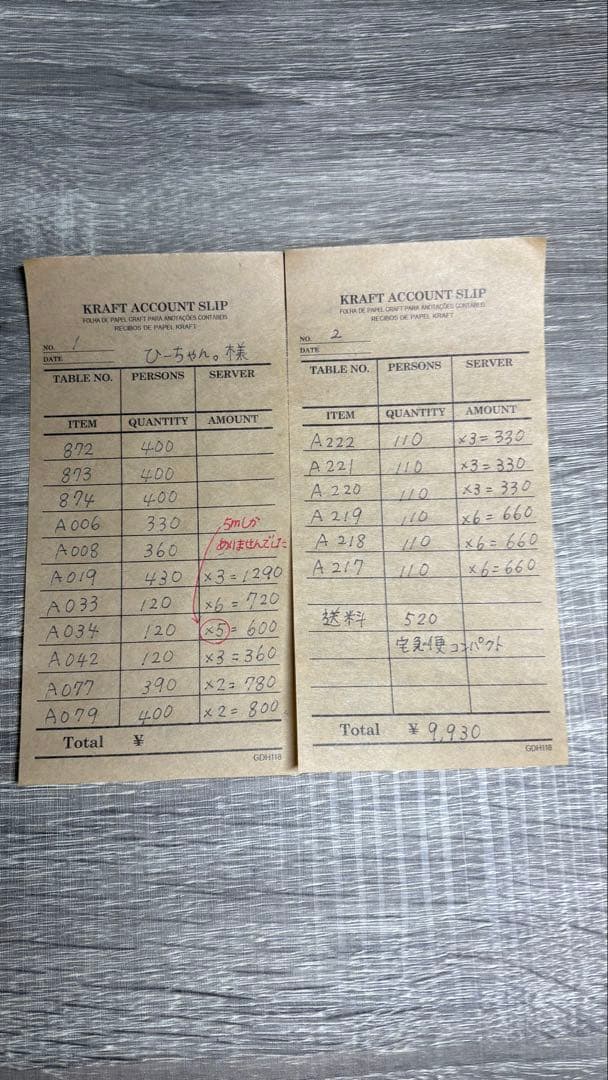 KRAFT ACCOUNT SLIP
FOLHA DE PAPEL CRAFT PARA ANOTAÇÕES CONTÁBEIS
RECIBOS DE PAPEL KRAFT
NO. 1
DATE
ひーちゃん。様
TABLE NO. PERSONS SERVER
ITEM QUANTITY AMOUNT
872 400
873 400
874 400
A006 330
5mしか
A008 360
ありませんでした
A019 430 ×3=1290
A033 120 ×6=720
A034 120 ×5=600
A042 120 ×3=360
A077 390 ×2=780
A079 400 ×2=800
Total ¥
GDH118
KRAFT ACCOUNT SLIP
FOLHA DE PAPEL CRAFT PARA ANOTAÇÕES CONTÁBEIS
RECIBOS DE PAPEL KRAFT
NO. 2
DATE
TABLE NO. PERSONS SERVER
ITEM QUANTITY AMOUNT
A222 110 ×3=330
A221 110 ×3=330
A220 110 ×3=330
A219 110 ×6=660
A218 110 ×6=660
A217 110 ×6=660
送料 520
宅急便コンパクト
Total ¥ 9,930
GDH118